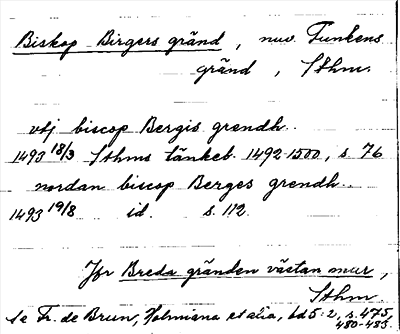 Biskop Birgers gränd, nuv. Funkens
gränd, Sthm.
utj biscop Bergis grendh..
1493 18/3 Sthms tänkeb. 1492-1500, s. 76
nordan biscop Berges grendh..
1493 19/8 id. s. 112
Jfr Breda gränden västan mur,
Sthm.
Se Fr. de Brun, Holmiana et alia, bd 5:2, s. 475,
480-485.